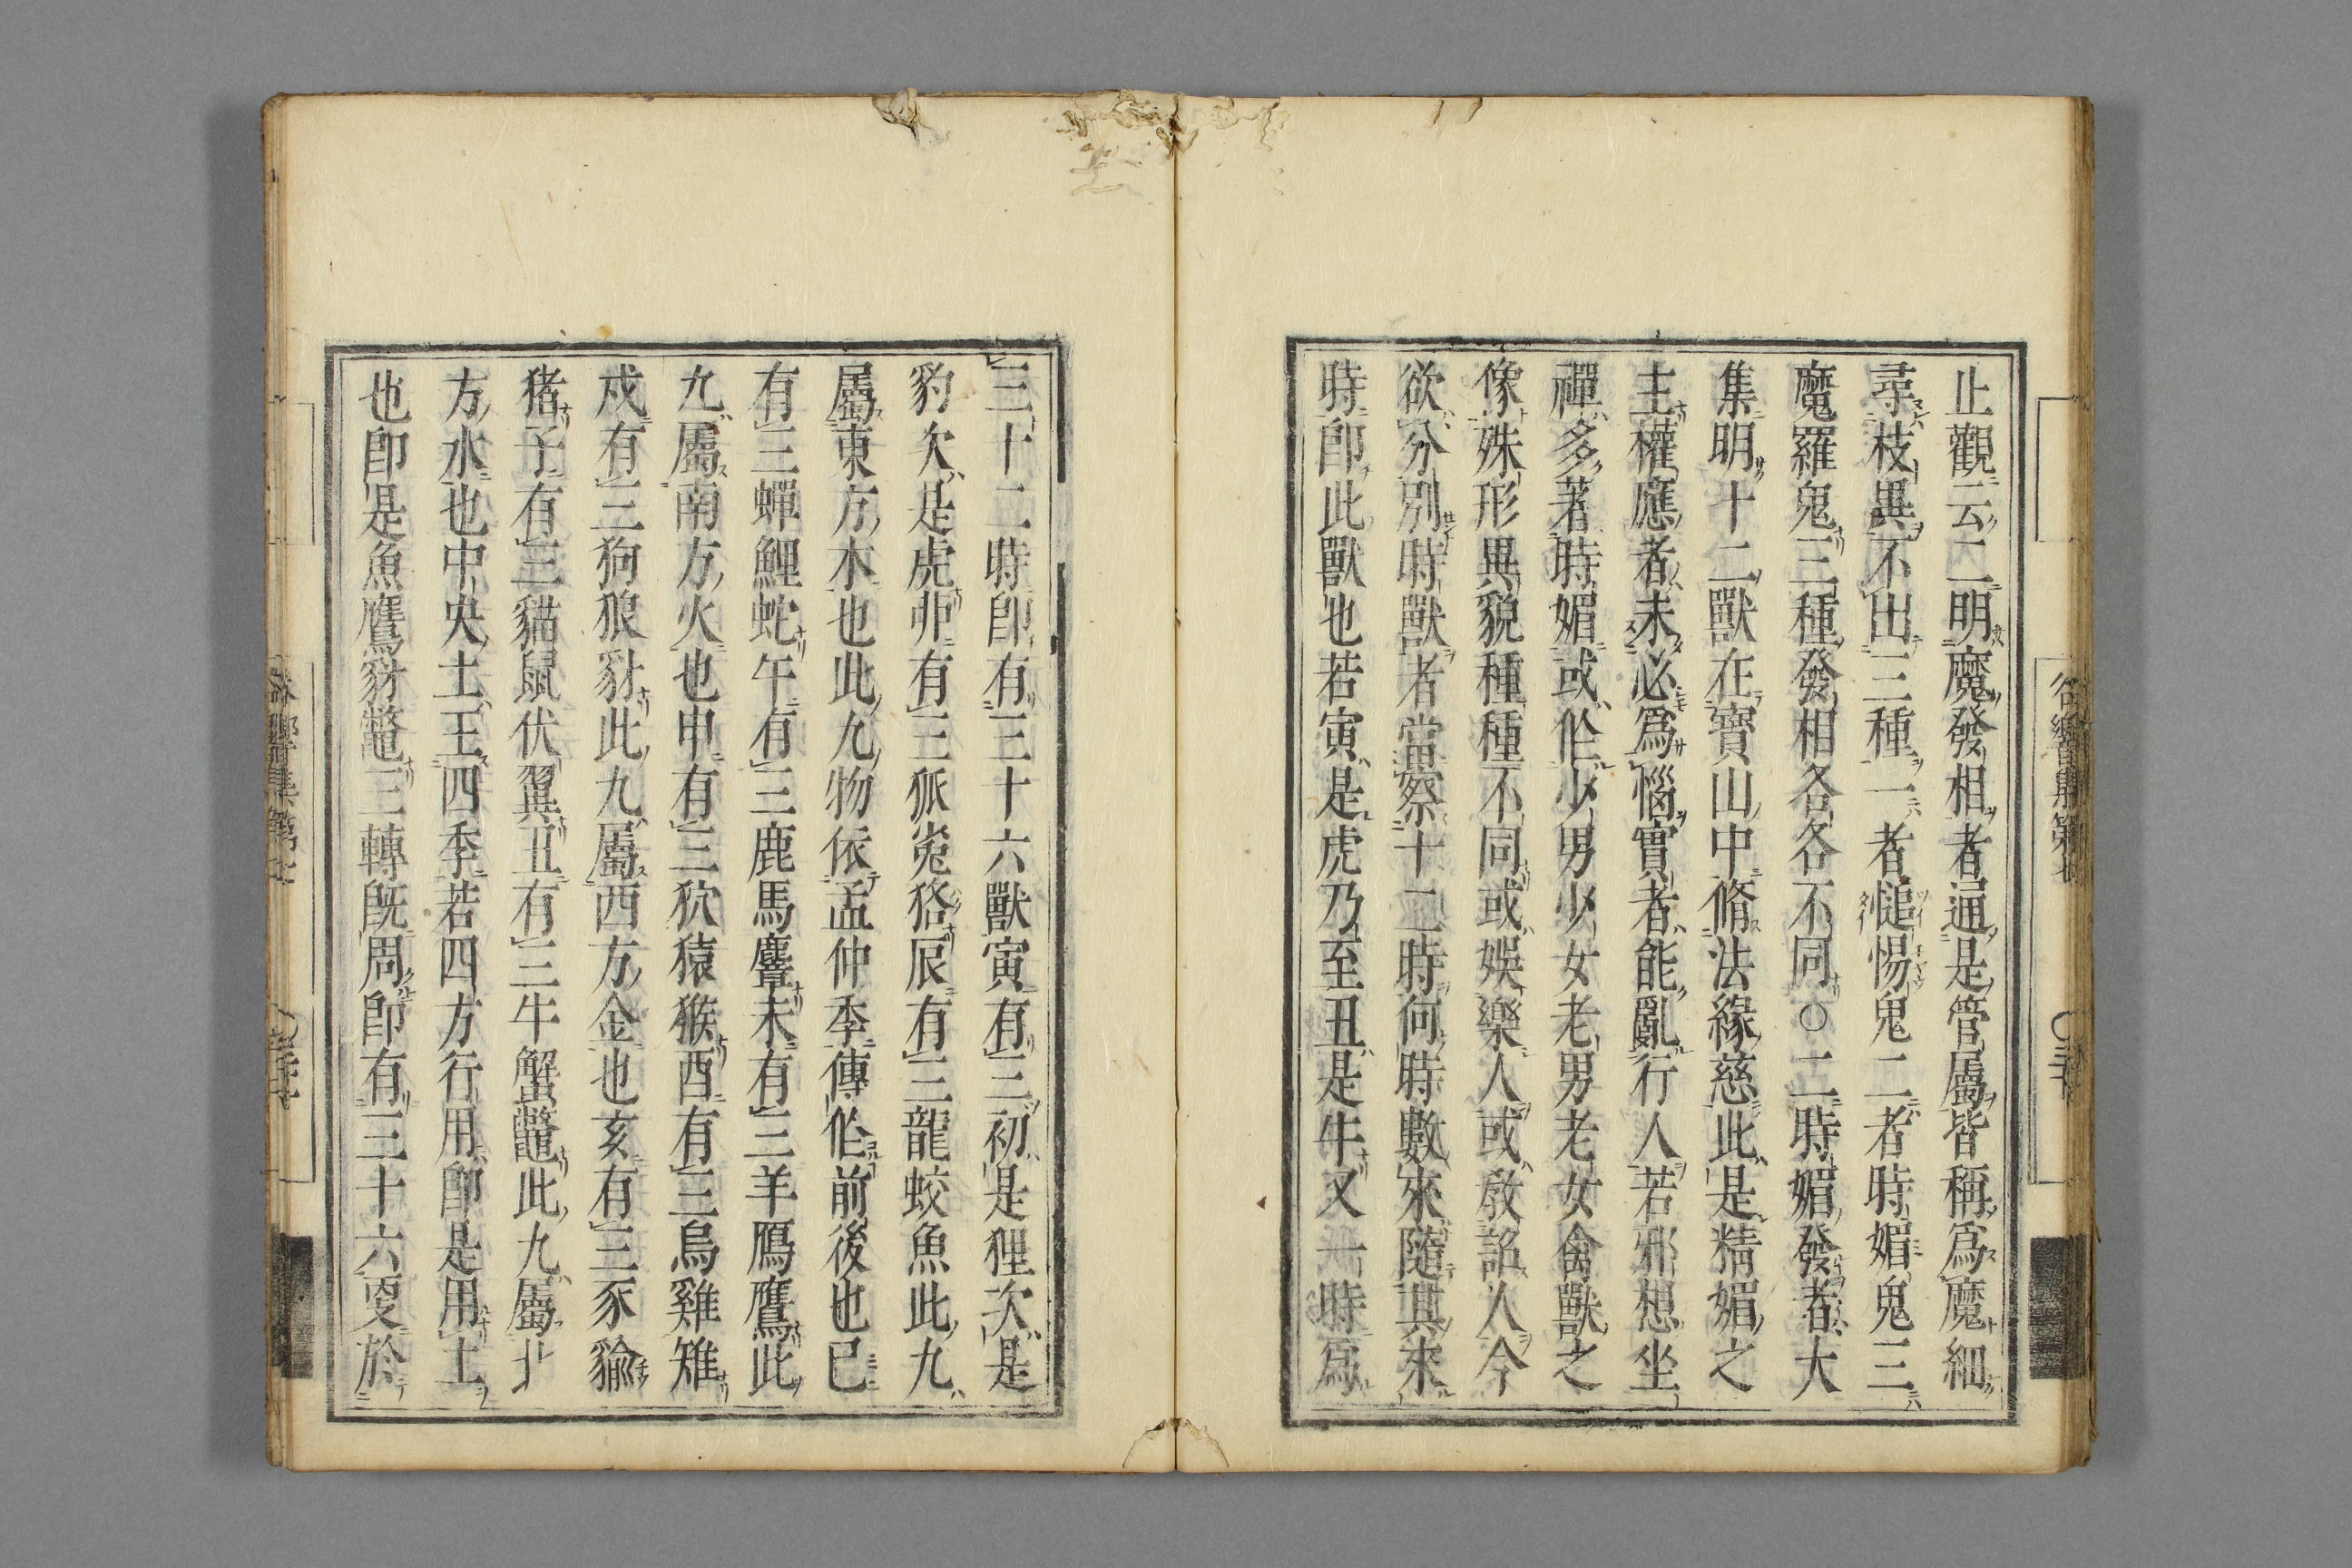 止觀云二明魔發相者通是管屬皆稱爲魔細
尋枝異不出三種一者慅惕鬼二者時媚鬼三
魔羅鬼三種發相各各不同○二時媚發者大
集明十二獸在寶山中脩法緣慈此是精媚之
主權應者未必爲惱實者能亂行人若邪想坐
禪多著時媚或作少男少女老男老女禽獸之
像殊形異貌種種不同或娛樂人或敎詔人今
欲分別時獸者當察十二時何時數來隨其來
時卽此獸也若寅是虎乃至丑是牛又一時爲
三十二時卽有三十六獸寅有三初是狸次是
豹次是虎卯有三狐兎狢辰有三龍蛟魚此九
屬東方木也此九物依孟仲季傳作前後也巳
有三蟬鯉蛇午有三鹿馬麞未有三羊鴈鷹此
九屬南方火也申有三狖猿猴酉有三烏雞雉
戍有三狗狼豺此九屬西方金也亥有三豕貐
猪子有三貓鼠伏翼丑有三牛蟹鼈此九屬北
方水也中央土王四季若四方行用卽是用土
也卽是魚鷹豺鼈三轉旣周卽有三十六更於